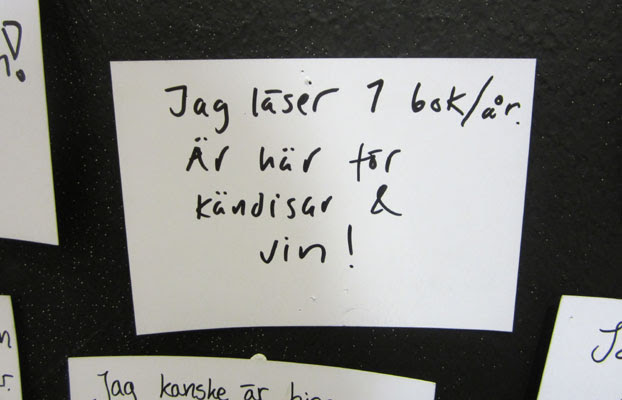 Jag läser 1 bok/år.
Är här för
kändisar &
vin!
Jag kanske är